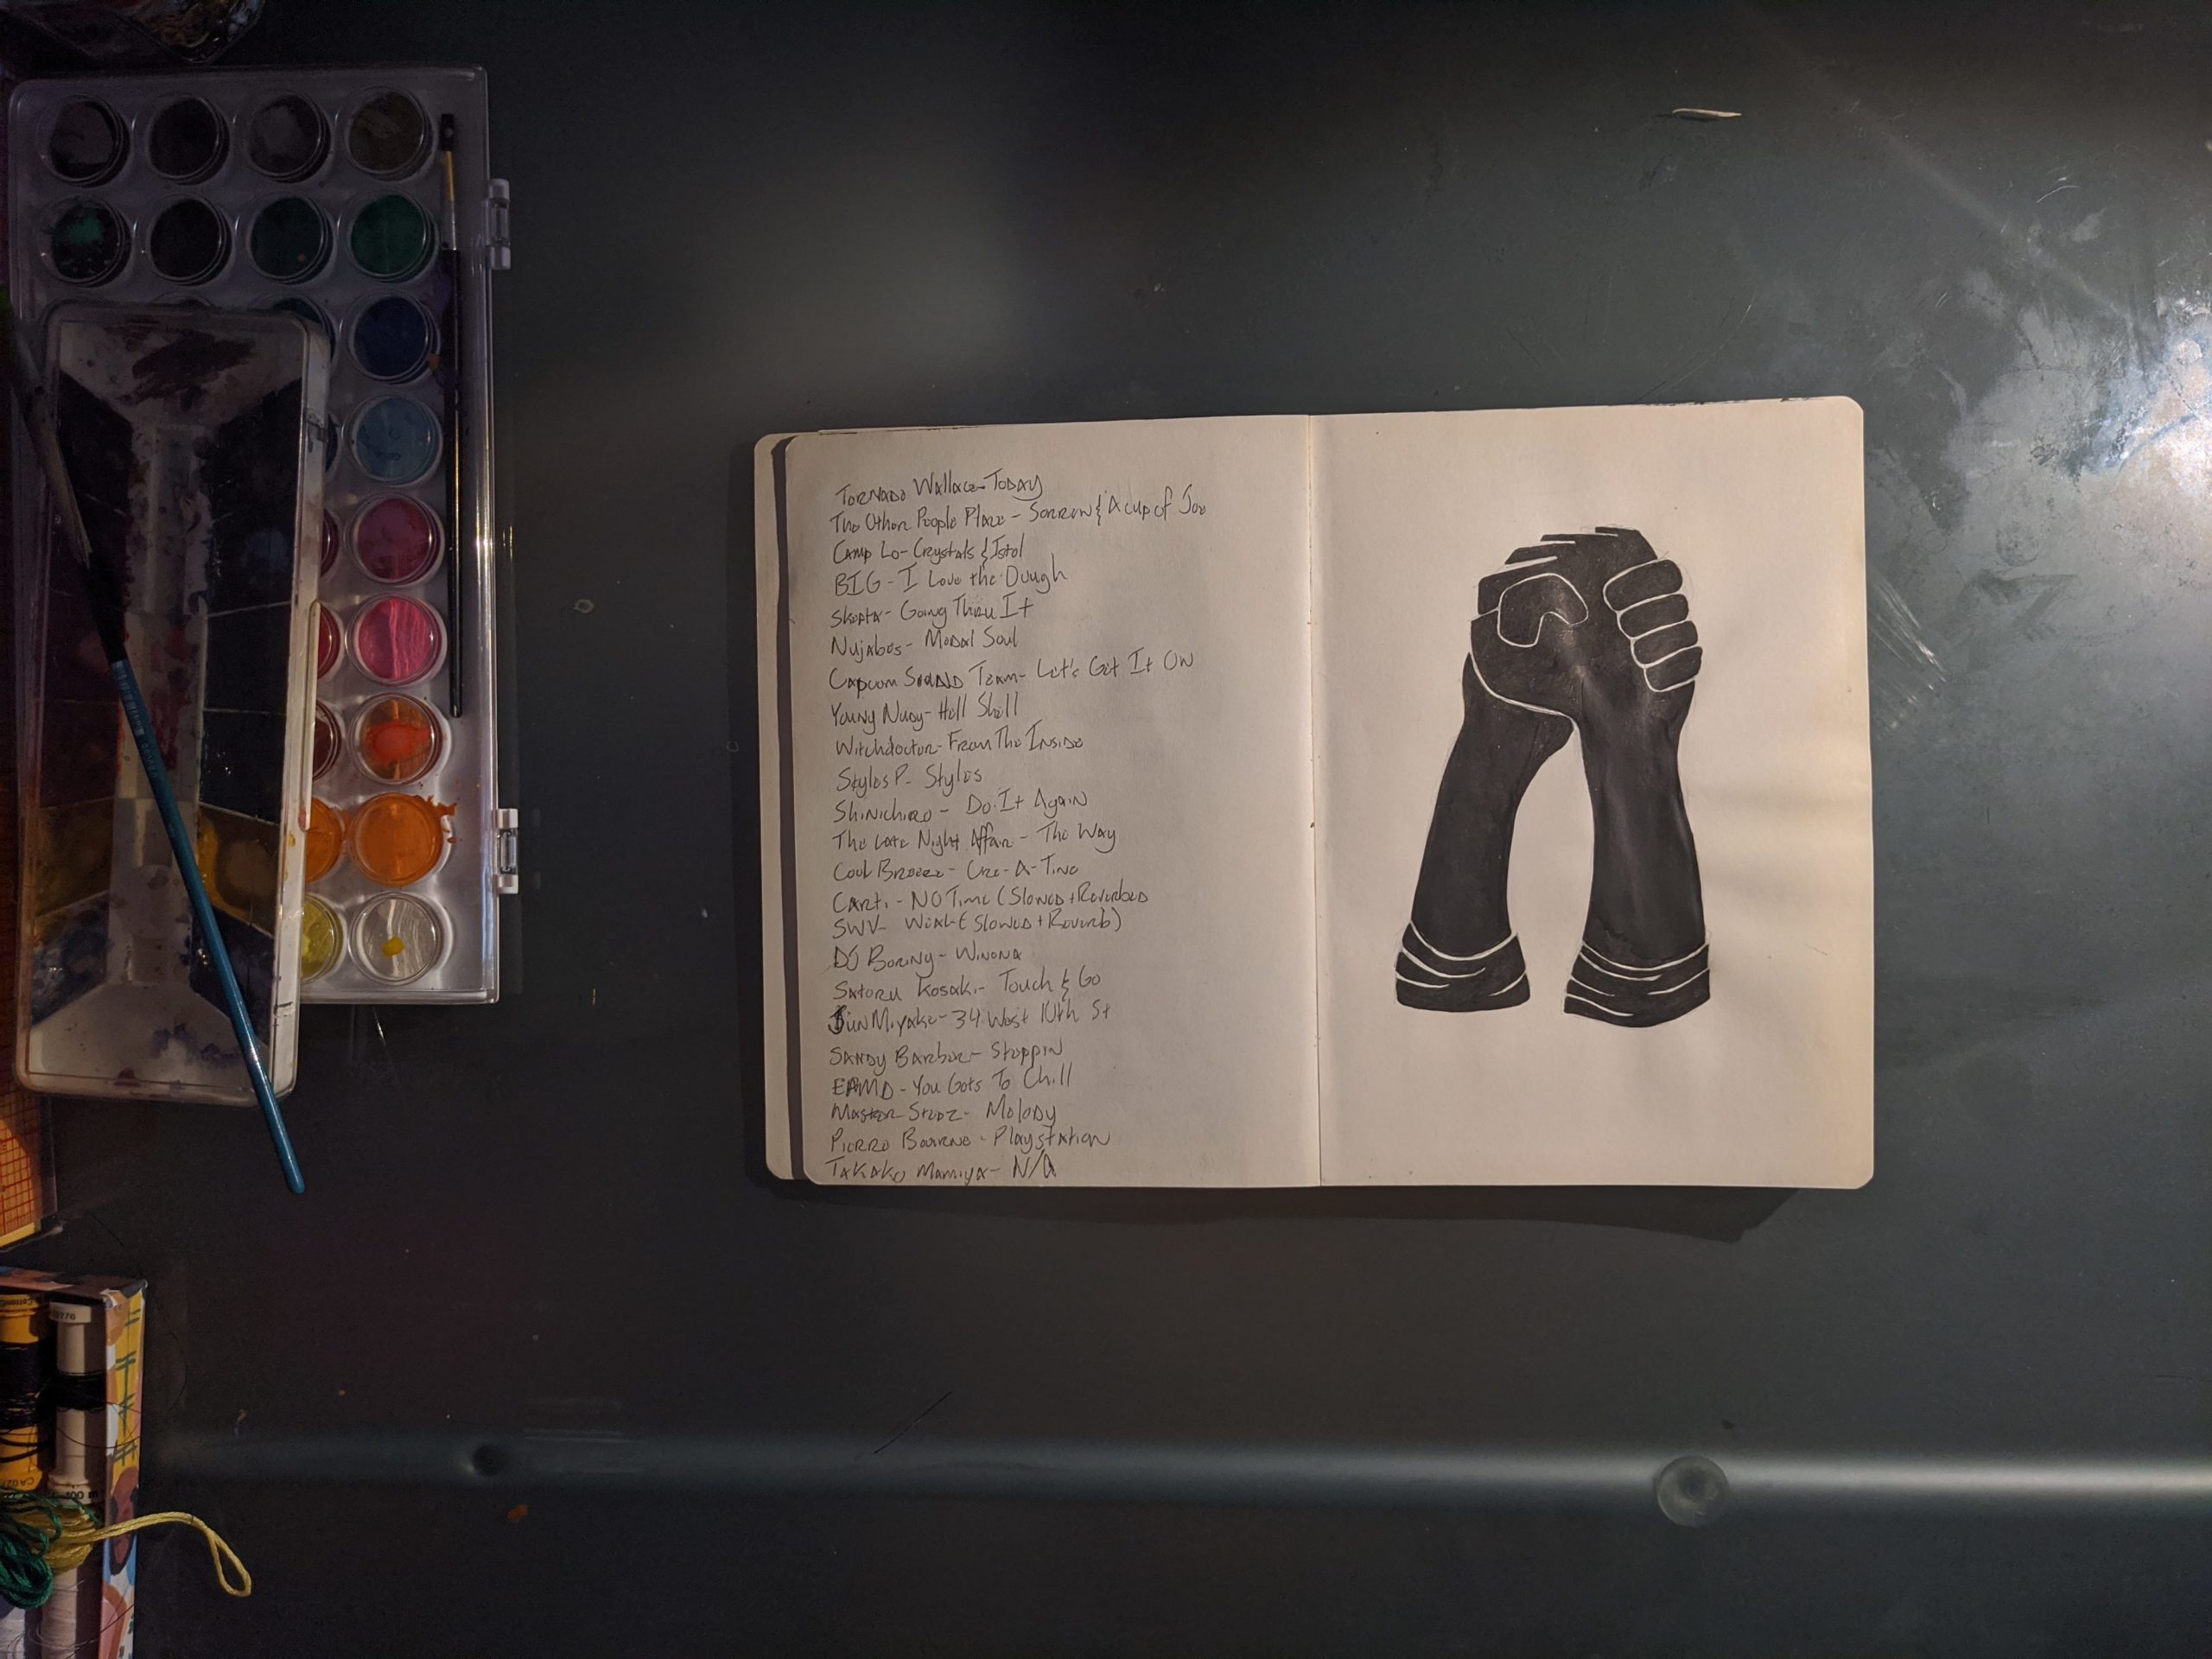 Tornado Wallace - Today
The Other People Place - Sorrow & A cup of Joe
Camp Lo - Crystals & Istol
BIG - I Love the Dough
Skepta - Going Thru It
Nujabes - Modal Soul
Capcom Sound Team - Let's Get It On
Young Nudy - Hell Shell
Witchdoctor - From The Inside
Styles P - Styles
Shinichiro - Do It Again
The Late Night Affair - The Way
Cool Breeze - Cre-A-Tine
Carti - No Time (Slowed + Reverbed
SWV - Weak (Slowed + Reverb)
DJ Boring - Winona
Satoru Kosaki - Touch & Go
Jun Miyake - 34 West 10th St
Sandy Barber - Stoppin
EPMD - You Gots To Chill
Master Stepz - Melody
Pierre Bourne - Playstation
Takako Mamiya - N/A